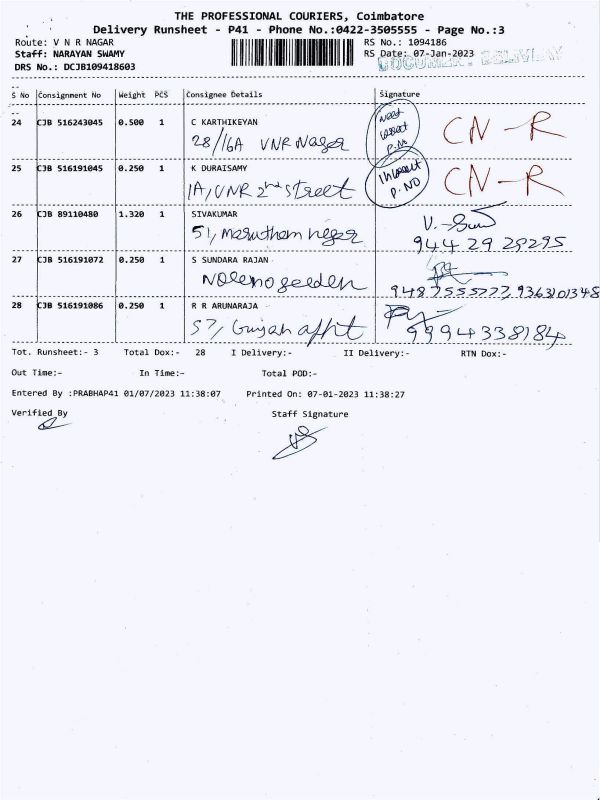 THE PROFESSIONAL COURIERS, Coimbatore
Delivery Runsheet - P41 - Phone No.:0422-3505555 - Page No.:3
Route: V N R NAGAR RS No.: 1094186
Staff: NARAYAN SWAMY RS Date: 07-Jan-2023
DOCUMENT DELIVERY
DRS No.: DCJB109418603
S No Consignment No Weight PCS Consignee Details Signature
24 CJB 516243045 0.500 1 C KARTHIKEYAN
28/16A VNR Nager P.No CN-R
25 CJB 516191045 0.250 1 K DURAISAMY
1A, VNR 2nd street P.NO CN-R
26 CJB 89110480 1.320 1 SIVAKUMAR V.
51, Marutham neger 944 29 29295
27 CJB 516191072 0.250 1 S SUNDARA RAJAN
94875 55777, 9363101348
28 CJB 516191086 0.250 1 R R ARUNARAJA
57, 9994338184
Tot. Runsheet:- 3 Total Dox:- 28 I Delivery:- II Delivery:- RTN Dox:-
Out Time:- In Time:- Total POD:-
Entered By :PRABHAP41 01/07/2023 11:38:07 Printed On: 07-01-2023 11:38:27
Verified By Staff Signature